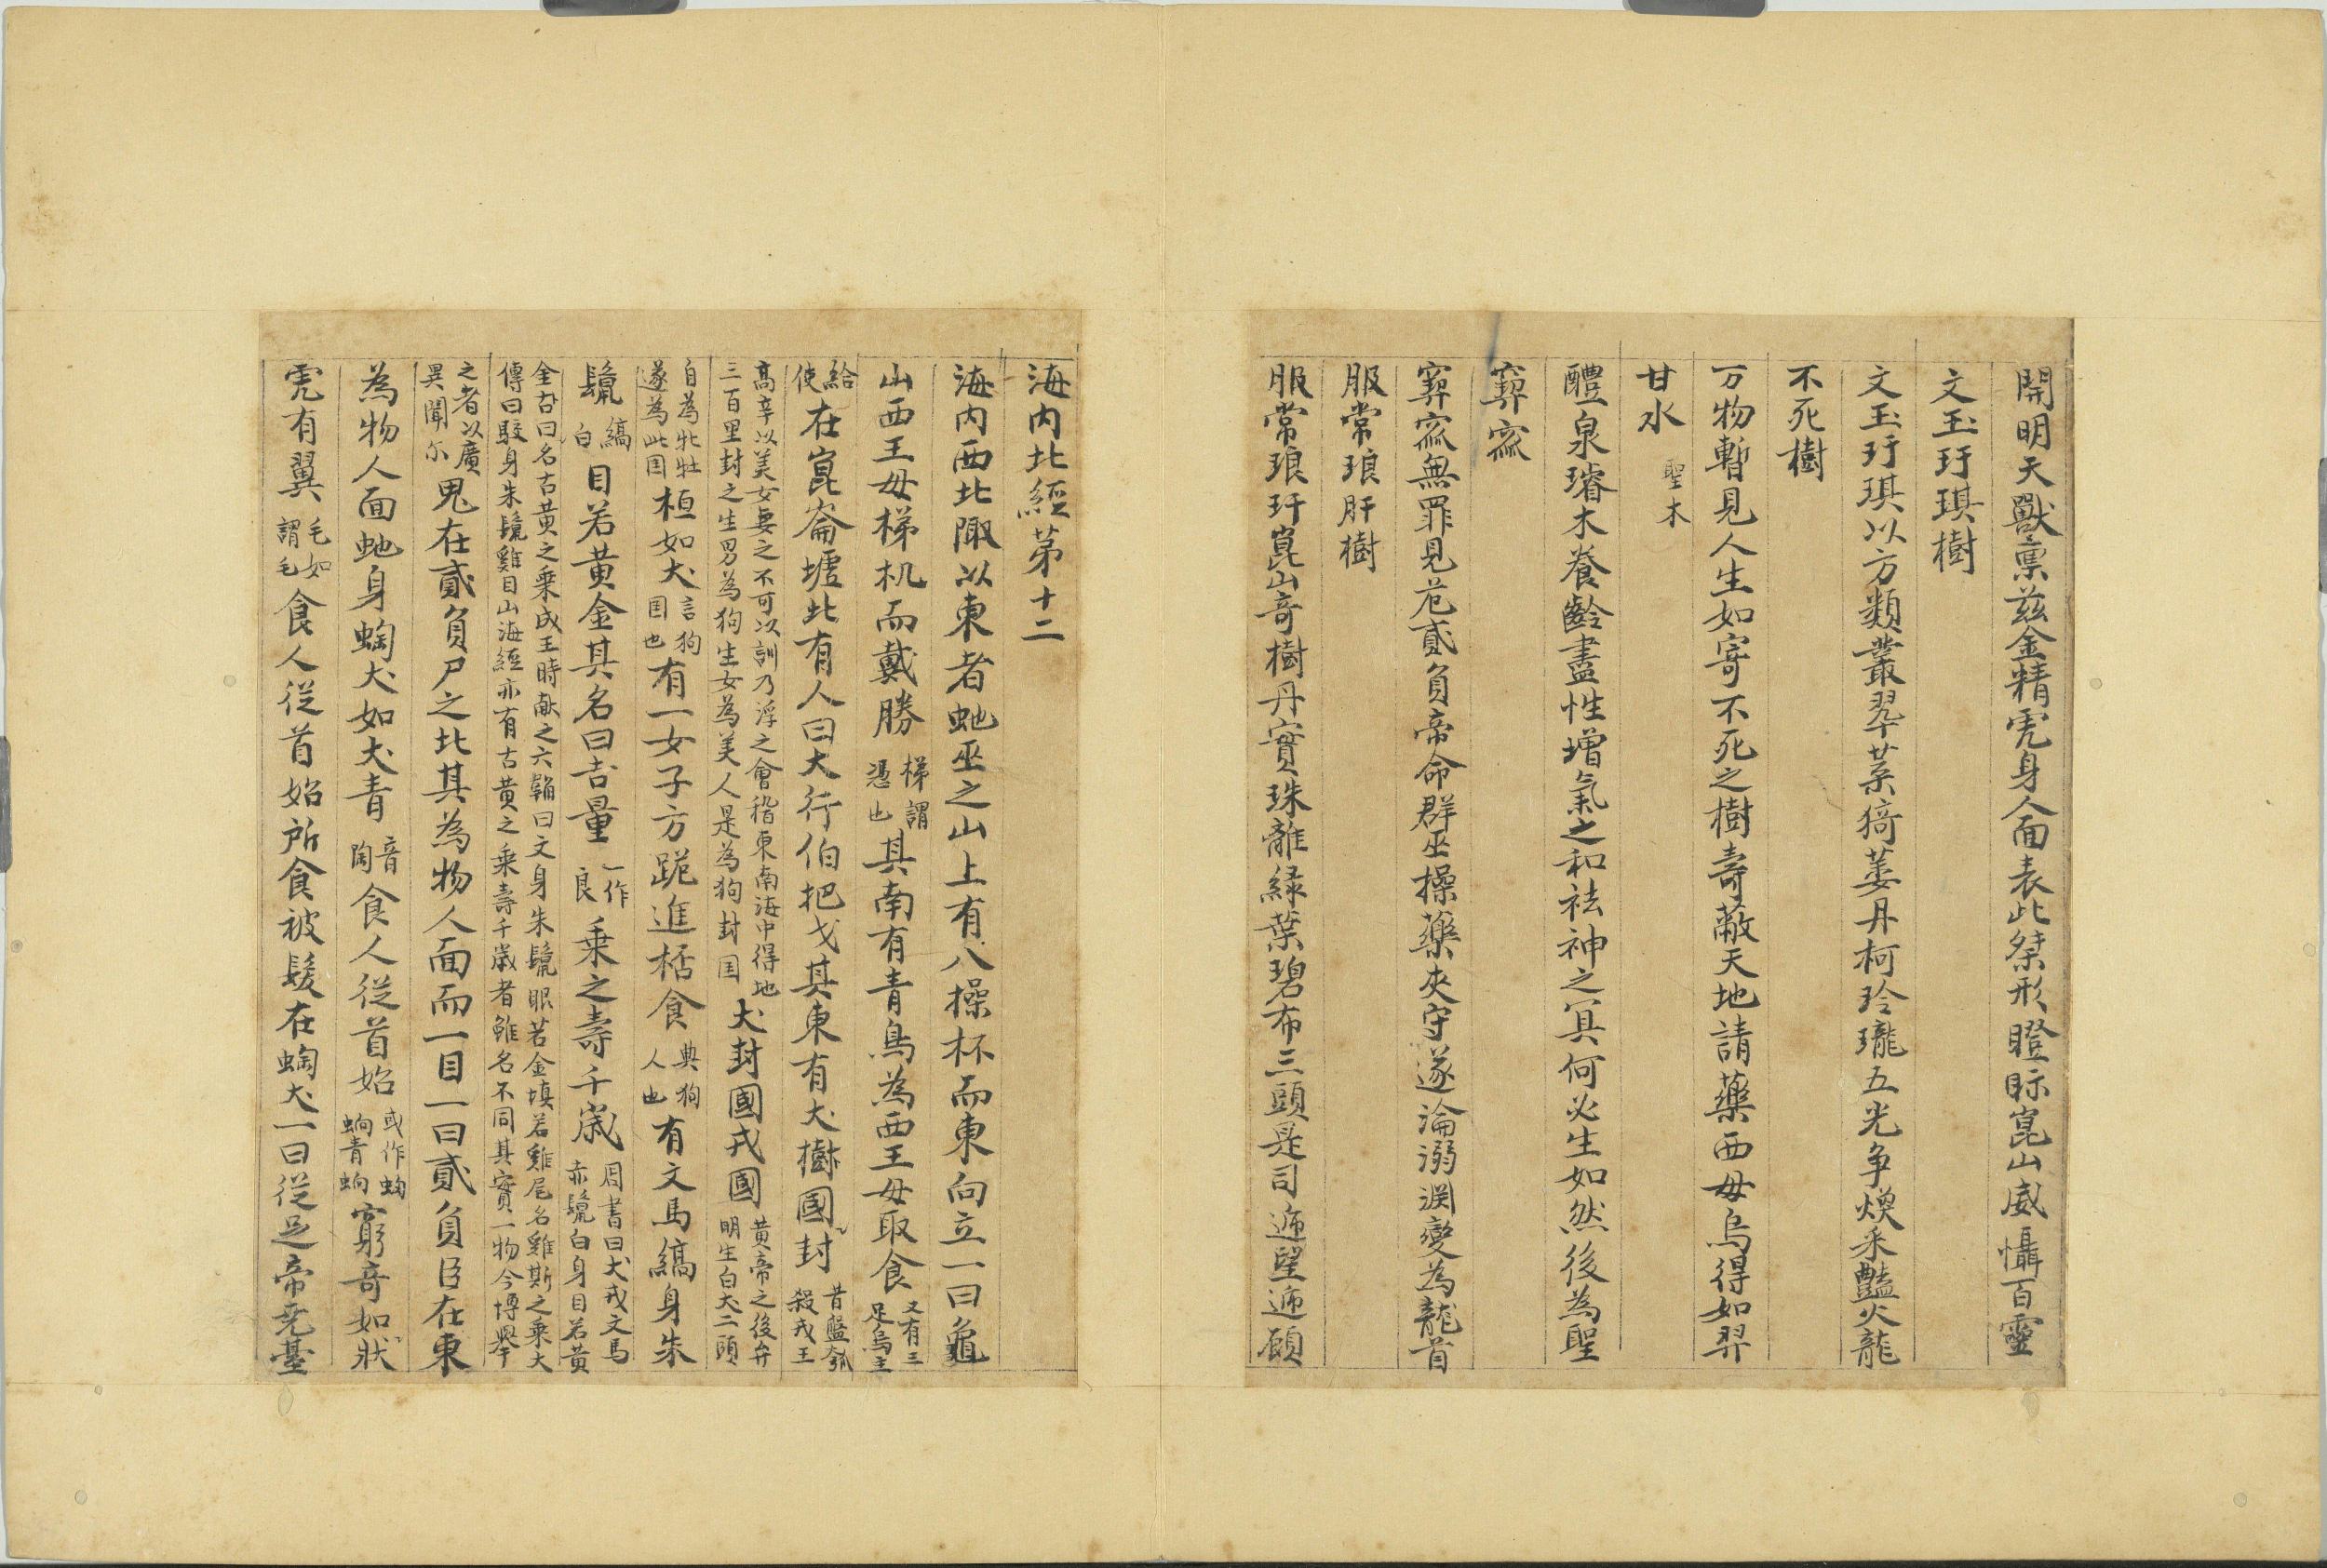 開明天獸稟茲金精虎身人面表此桀形瞪眎崑山威懾百靈
文玉玗琪樹
文玉玗琪以方類叢翠葉猗萎丹柯玲瓏五光争煥采豔火龍
不死樹
万物暫見人生如寄不死之樹壽蔽天地請藥西母烏得如羿
甘水 聖木
醴泉璿木養齡盡性增氣之和袪神之冥何必生如然後為聖
窫窳
窫窳無罪見危貳負帝命群巫操藥夾守遂淪溺渊變為龍首
服常琅玕樹
服常琅玕崑山奇樹丹實珠離緑葉碧布三頭是司遞望遞顧
海内北經苐十二
海内西北陬以東者虵巫之山上有八操杯而東向立一曰龜
山西王母梯机而戴勝 梯謂憑也 其南有青鳥為西王母取食 又有三足烏主
給使 在崑崙墟北有人曰大行伯把戈其東有犬樹國封 昔盤瓠殺戎王
高辛以美女妻之不可以訓乃浮之會稽東南海中得地三百里封之生男為狗生女為美人是為狗封囯 犬封國戎國 黄帝之後弁明生白犬二頭
自為牝牡遂為此囯 桓如犬 言狗囯也 有一女子方跪進桮食 典狗人也 有文馬縞身朱
鬣 縞白 目若黄金其名曰吉量 一作良 乗之壽千歳 周書曰犬戎文馬赤鬣白身目若黄
金吉曰名古黄之乗成王時献之六韜曰文身朱鬣眼若金填若雞尾名雞斯之乗大傳曰駁身朱鬣雞目山海經亦有古黄之乗壽千歳者雖名不同其實一物今博舉
之者以廣異聞尔 鬼在貳負尸之北其為物人面而一目一曰貳負臣在東
為物人面虵身蜪犬如犬青 音陶 食人從首始 或作蚼蚼青蚼 窮奇如狀
虎有翼 毛如謂毛 食人從首始所食被髮在蜪犬一曰從足帝尭䑓